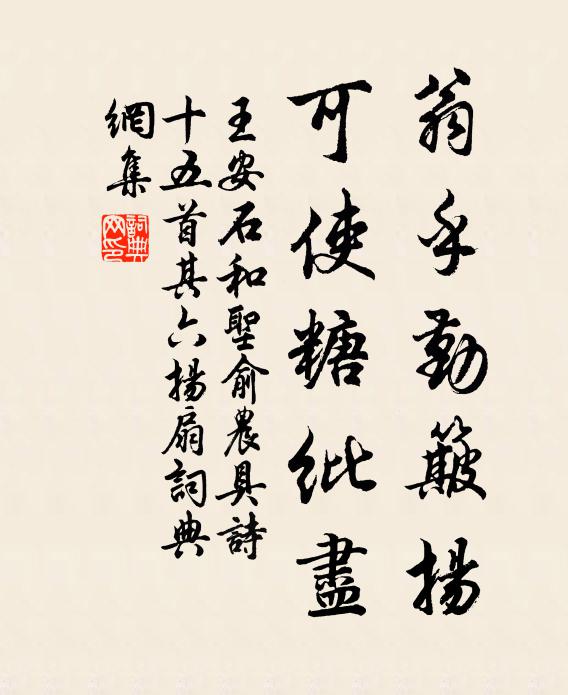 翁乎勤簸揚
可使糖紕盡
王安石和聖俞農具詩
十五首其六揚扇詞典
網集
詞典網印